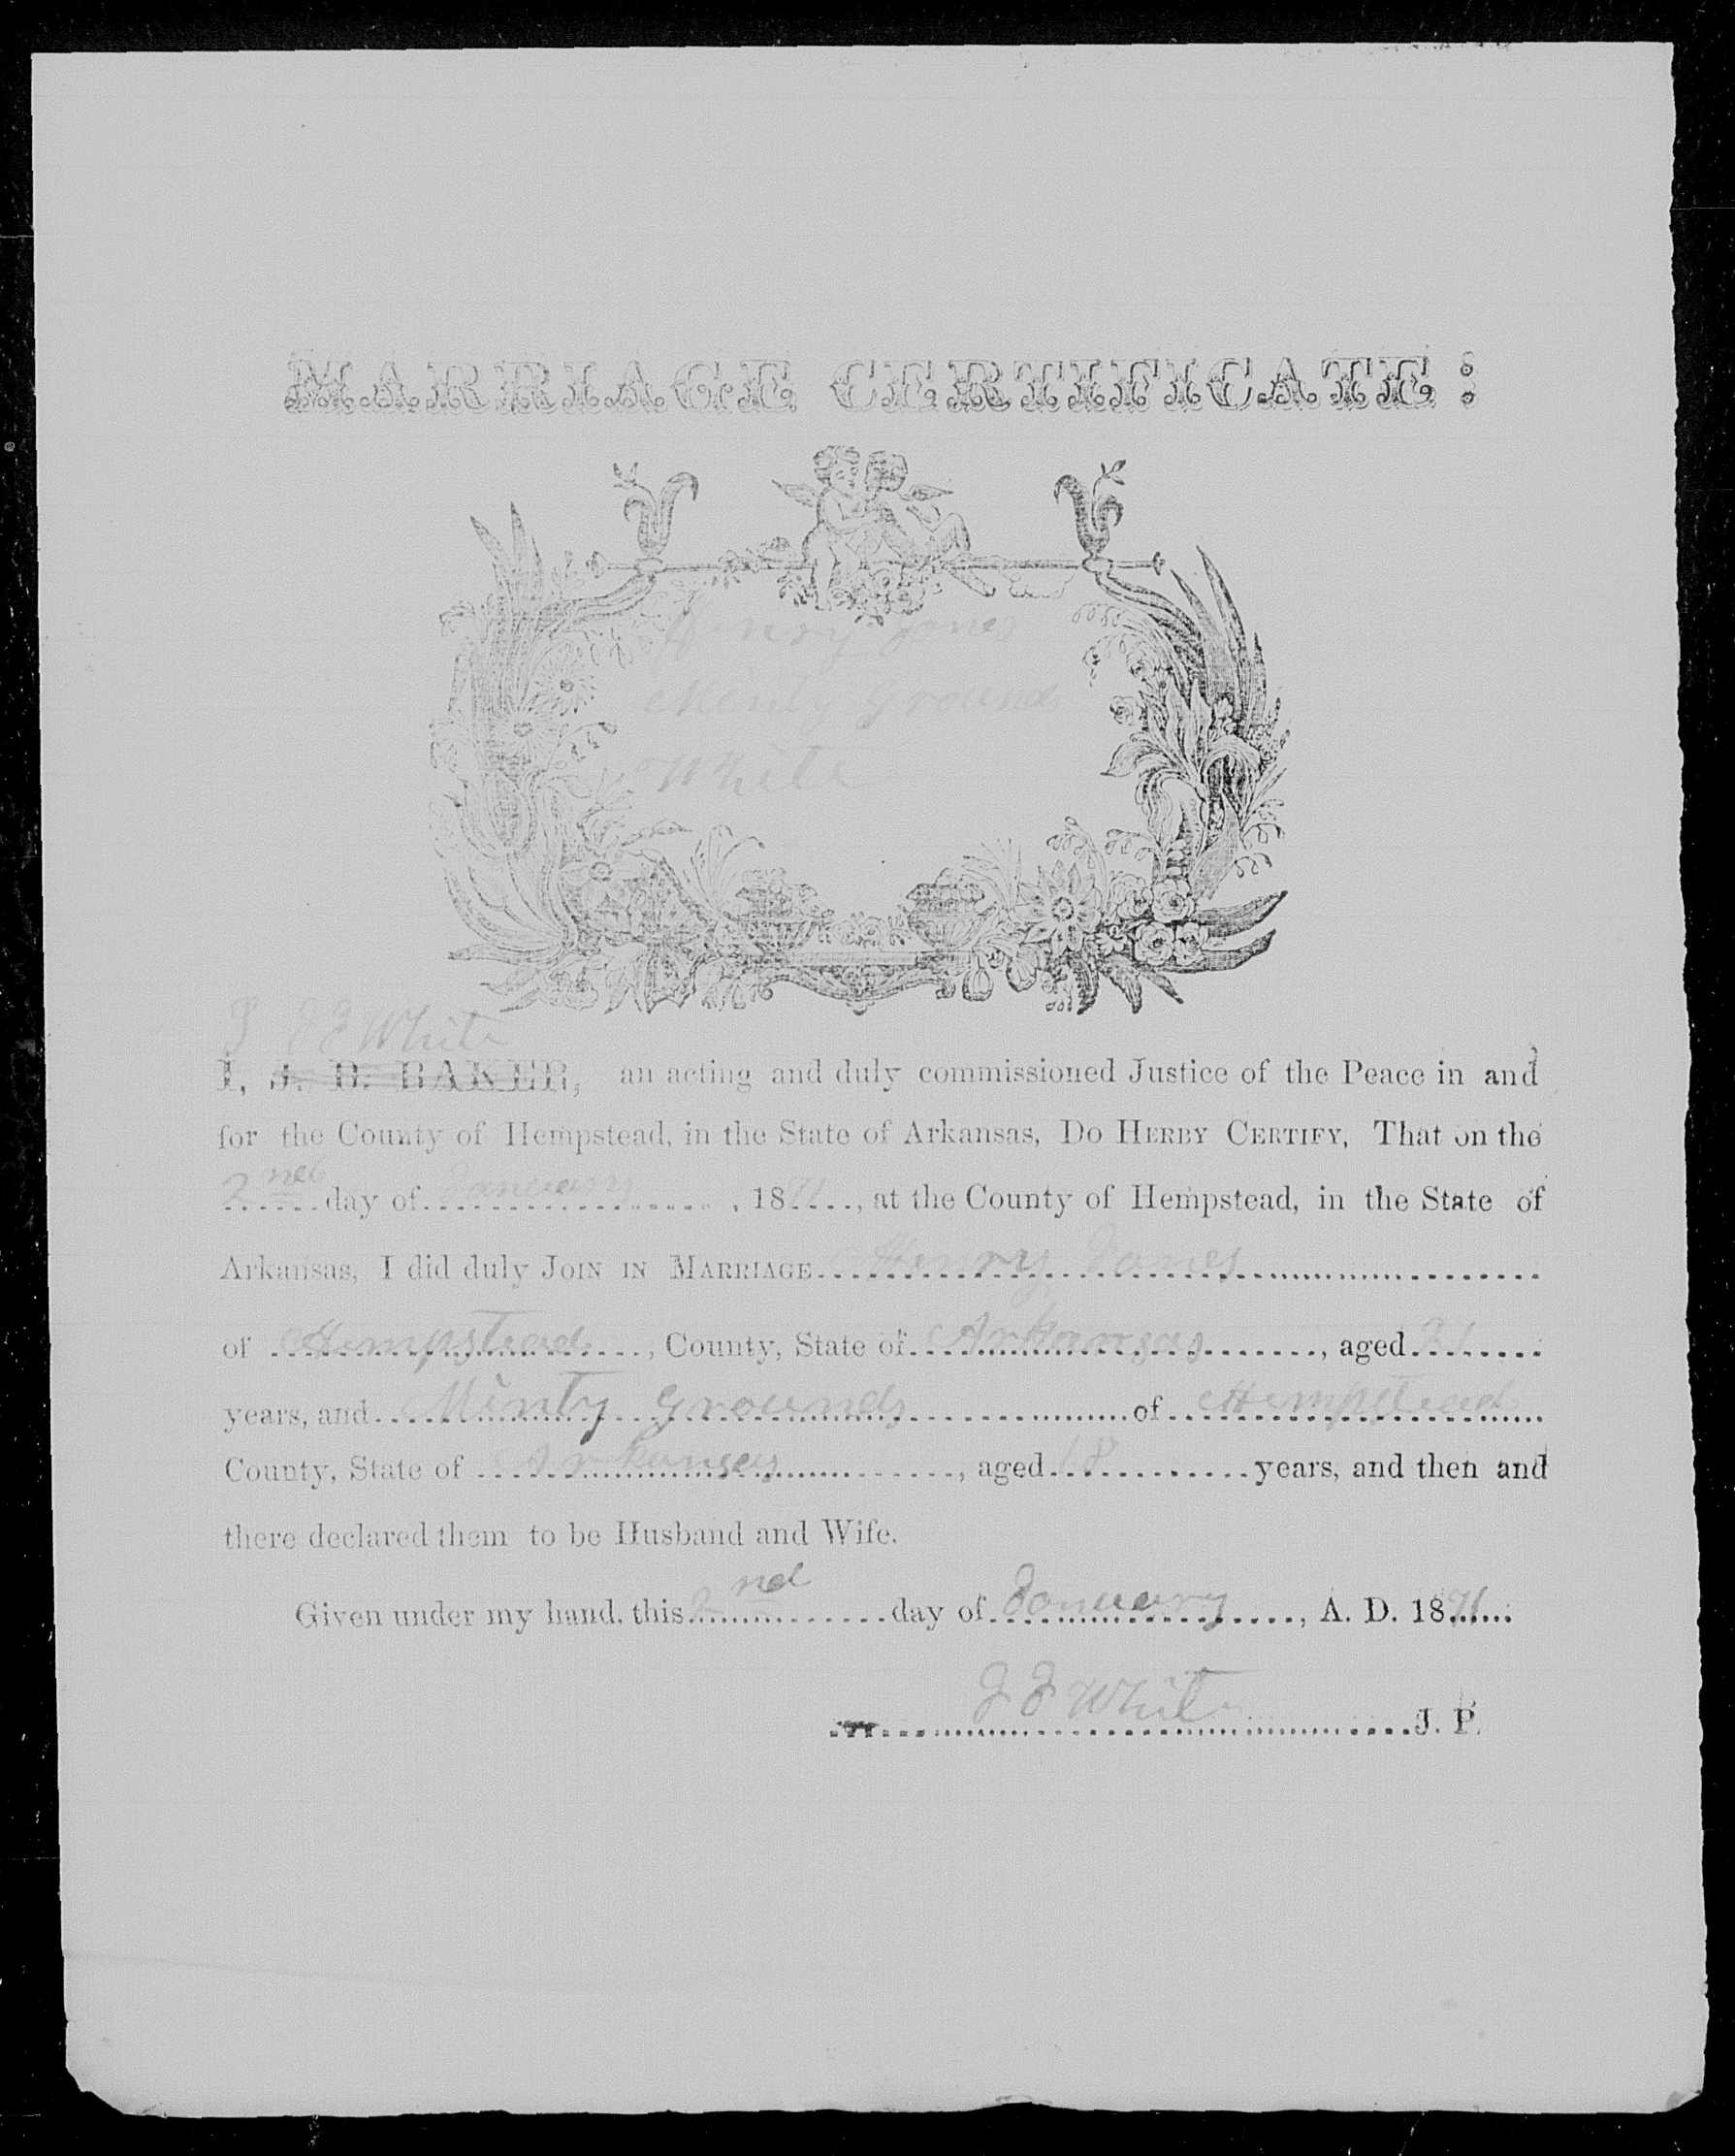 MARRIAGE CERTIFICATE:
Henry Jones
Minty Grounds
White
I J F White
I, J. B. BAKER, an acting and duly commissioned Justice of the Peace in and
for the County of Hempstead, in the State of Arkansas, DO HERBY CERTIFY, That on the
2nd day of January, 1891, at the County of Hempstead, in the State of
Arkansas, I did duly JOIN IN MARRIAGE Henry Jones
of Hempstead, County, State of Arkansas, aged 21
years, and Minty Grounds of Hempstead
County, State of Arkansas, aged 18 years, and then and
there declared them to be Husband and Wife.
Given under my hand, this 2nd day of January, A. D. 1891
J F White J. P.